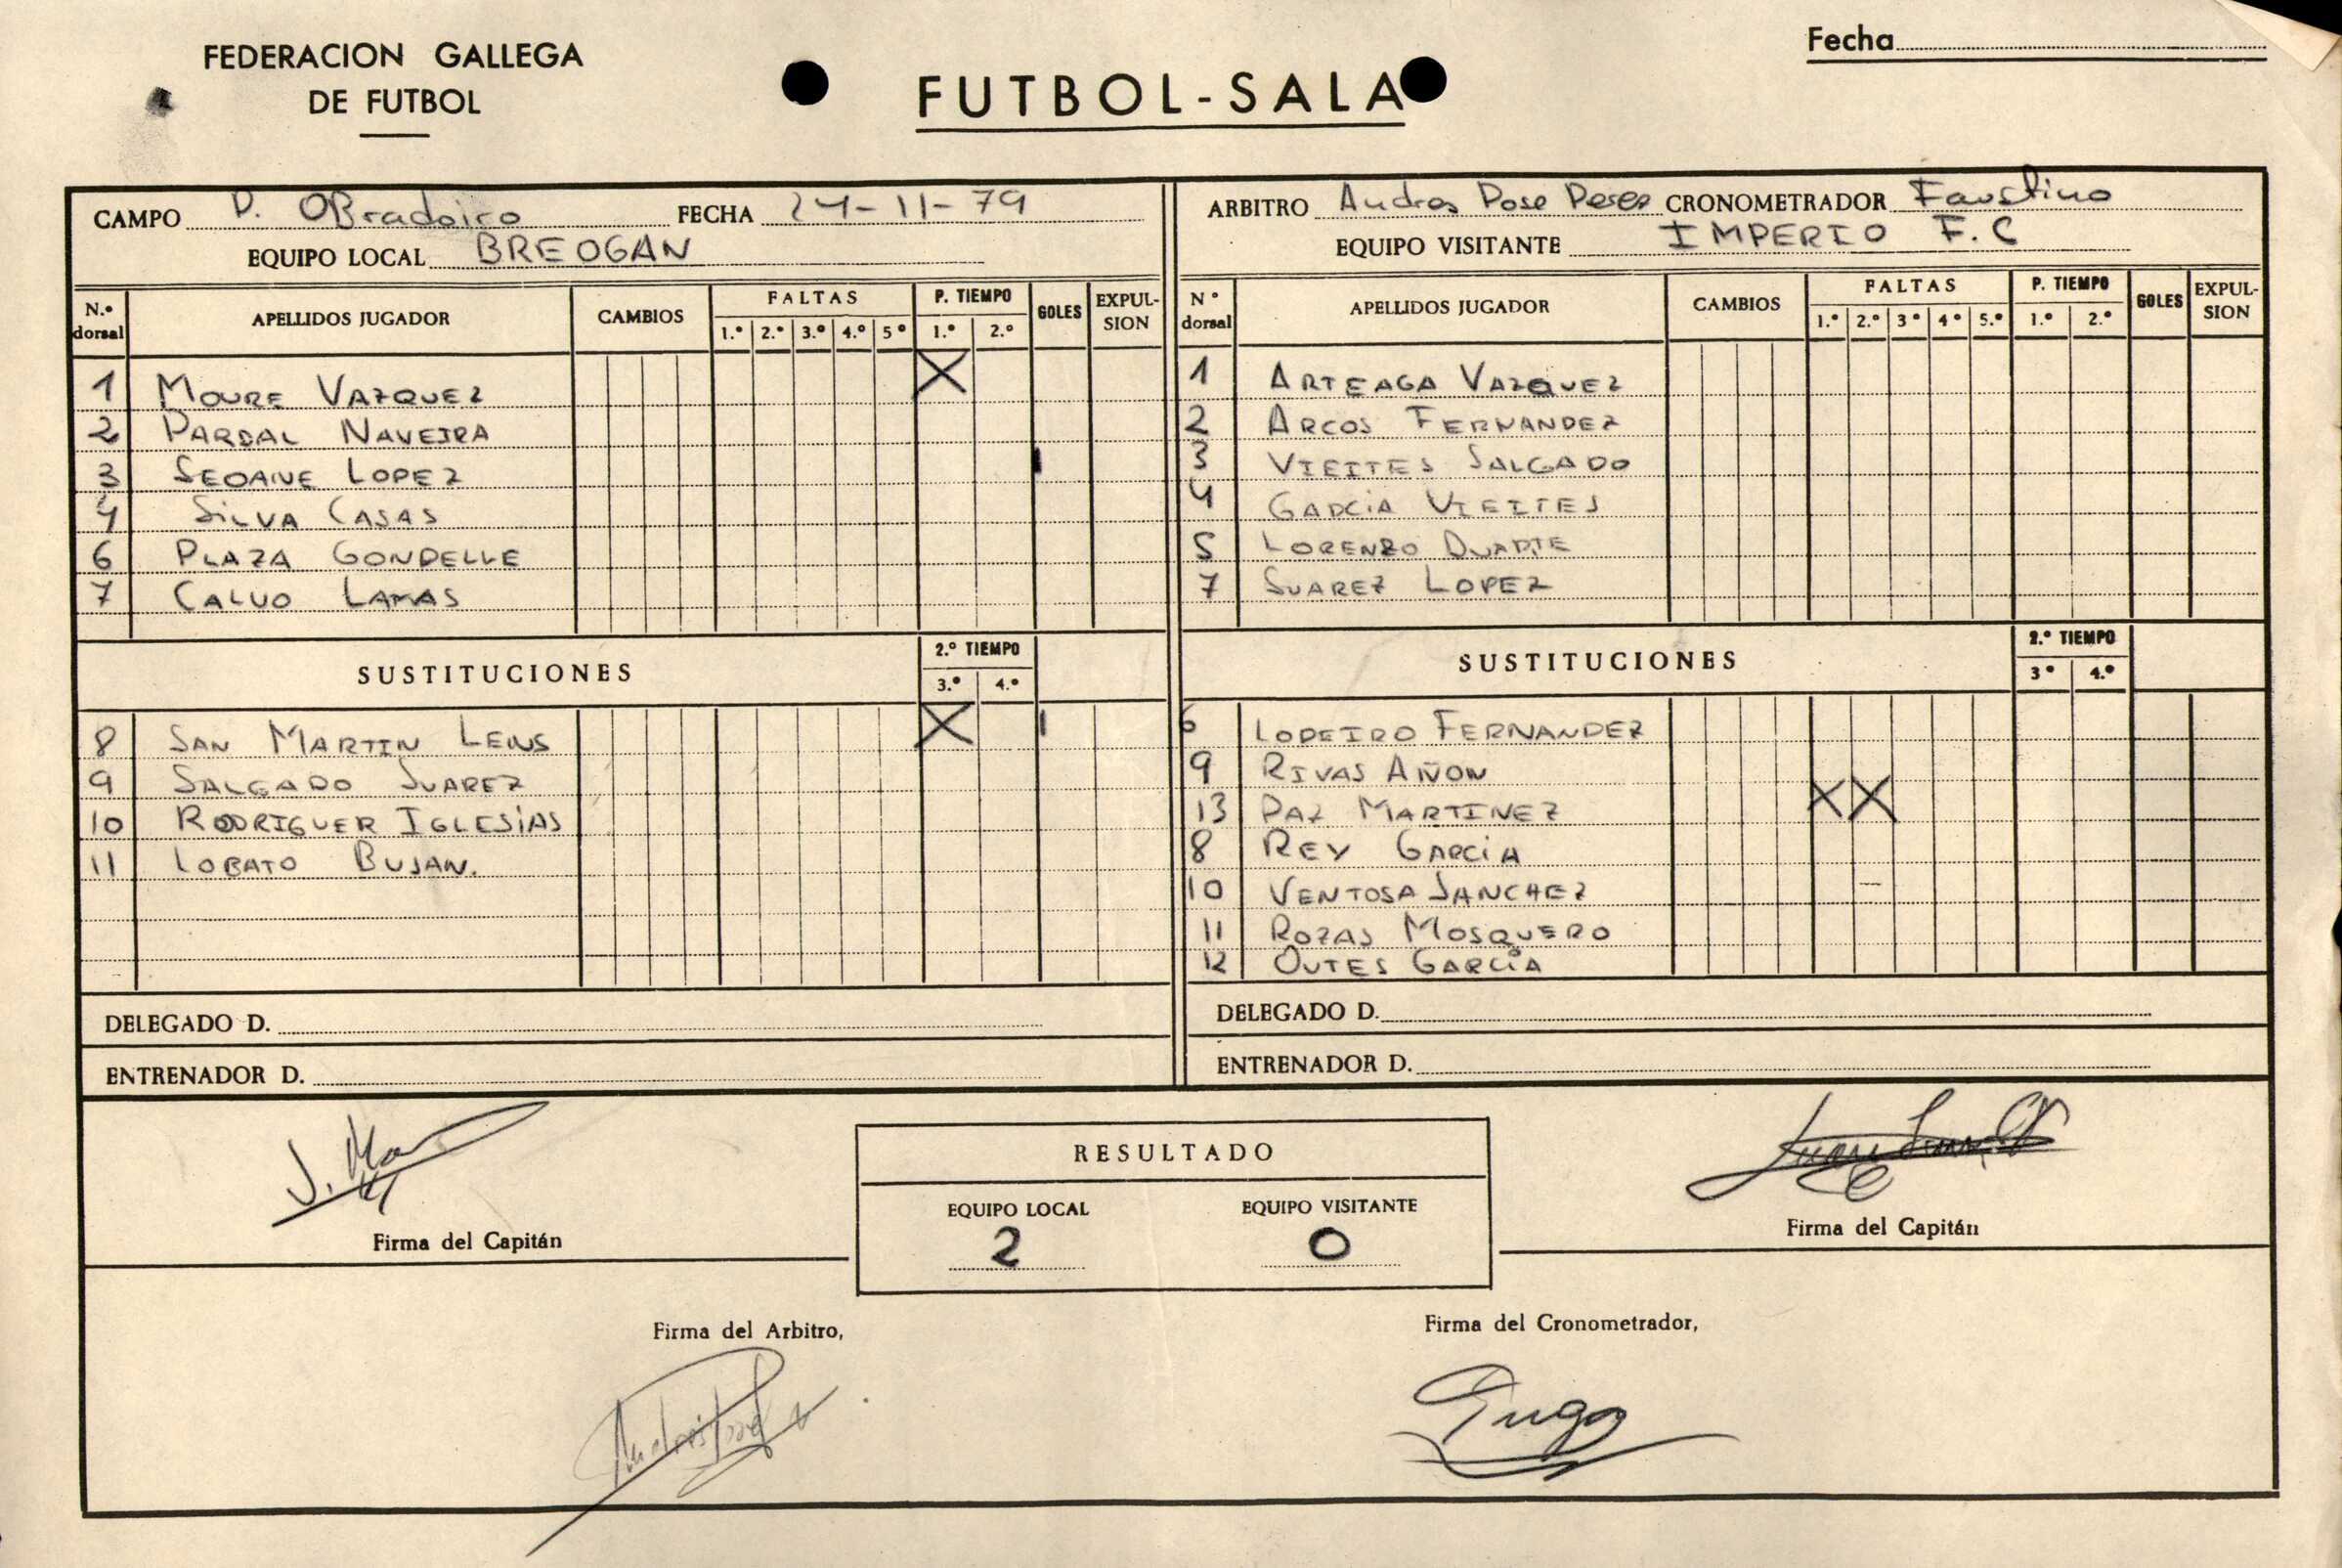 FEDERACION GALLEGA
DE FUTBOL
FUTBOL-SALA
Fecha
CAMPO P. OBradoiro FECHA 24-11-79
EQUIPO LOCAL BREOGAN
N.º dorsal APELLIDOS JUGADOR CAMBIOS FALTAS 1.º 2.º 3.º 4.º 5º P. TIEMPO 1.º 2.º GOLES EXPULSION
1 MOURE VAZQUEZ X
2 PARDAL NAVEIRA
3 SEOANE LOPEZ 1
4 SILVA CASAS
6 PLAZA GONDELLE
7 CALVO LAMAS
SUSTITUCIONES 2.º TIEMPO 3.º 4.º
8 SAN MARTIN LENS X 1
9 SALGADO SUAREZ
10 RODRIGUER IGLESIAS
11 LOBATO BUJAN.
DELEGADO D.
ENTRENADOR D.
ARBITRO Andres Pose Perez CRONOMETRADOR Faustino
EQUIPO VISITANTE IMPERIO F.C
Nº dorsal APELLIDOS JUGADOR CAMBIOS FALTAS 1.º 2.º 3º 4º 5.º P. TIEMPO 1.º 2.º GOLES EXPULSION
1 ARTEAGA VAZQUEZ
2 ARCOS FERNANDEZ
3 VIEITES SALGADO
4 GARCIA VIEITES
5 LORENZO DUARTE
7 SUAREZ LOPEZ
SUSTITUCIONES 2.º TIEMPO 3º 4.º
6 LOPEIRO FERNANDEZ
9 RIVAS AÑON
13 PAZ MARTINEZ X X
8 REY GARCIA
10 VENTOSA SANCHEZ –
11 ROZAS MOSQUERO
12 OUTES GARCIA
DELEGADO D.
ENTRENADOR D.
Firma del Capitán
RESULTADO
EQUIPO LOCAL EQUIPO VISITANTE
2 0
Firma del Capitán
Firma del Arbitro,
Firma del Cronometrador,